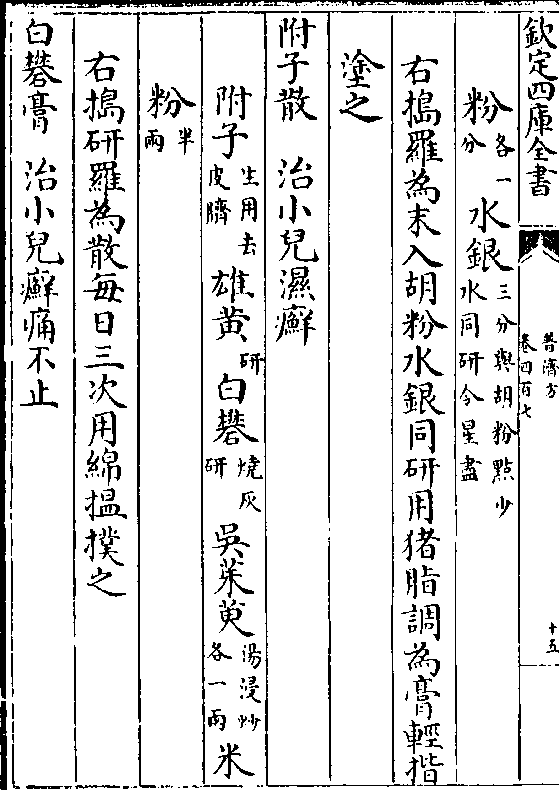 欽定四庫全書
普濟方
卷四百七
十五
粉各一分水銀三分與胡粉點少水同研令星盡
右搗羅為末入胡粉水銀同研用猪脂調為膏輕揩
塗之
附子散　治小兒濕癬
附子生用去皮臍雄黃研白礬燒灰研吳茱萸湯浸炒各一兩米
粉半兩
右搗研羅為散每日三次用綿搵撲之
白礬膏　治小兒癬痛不止